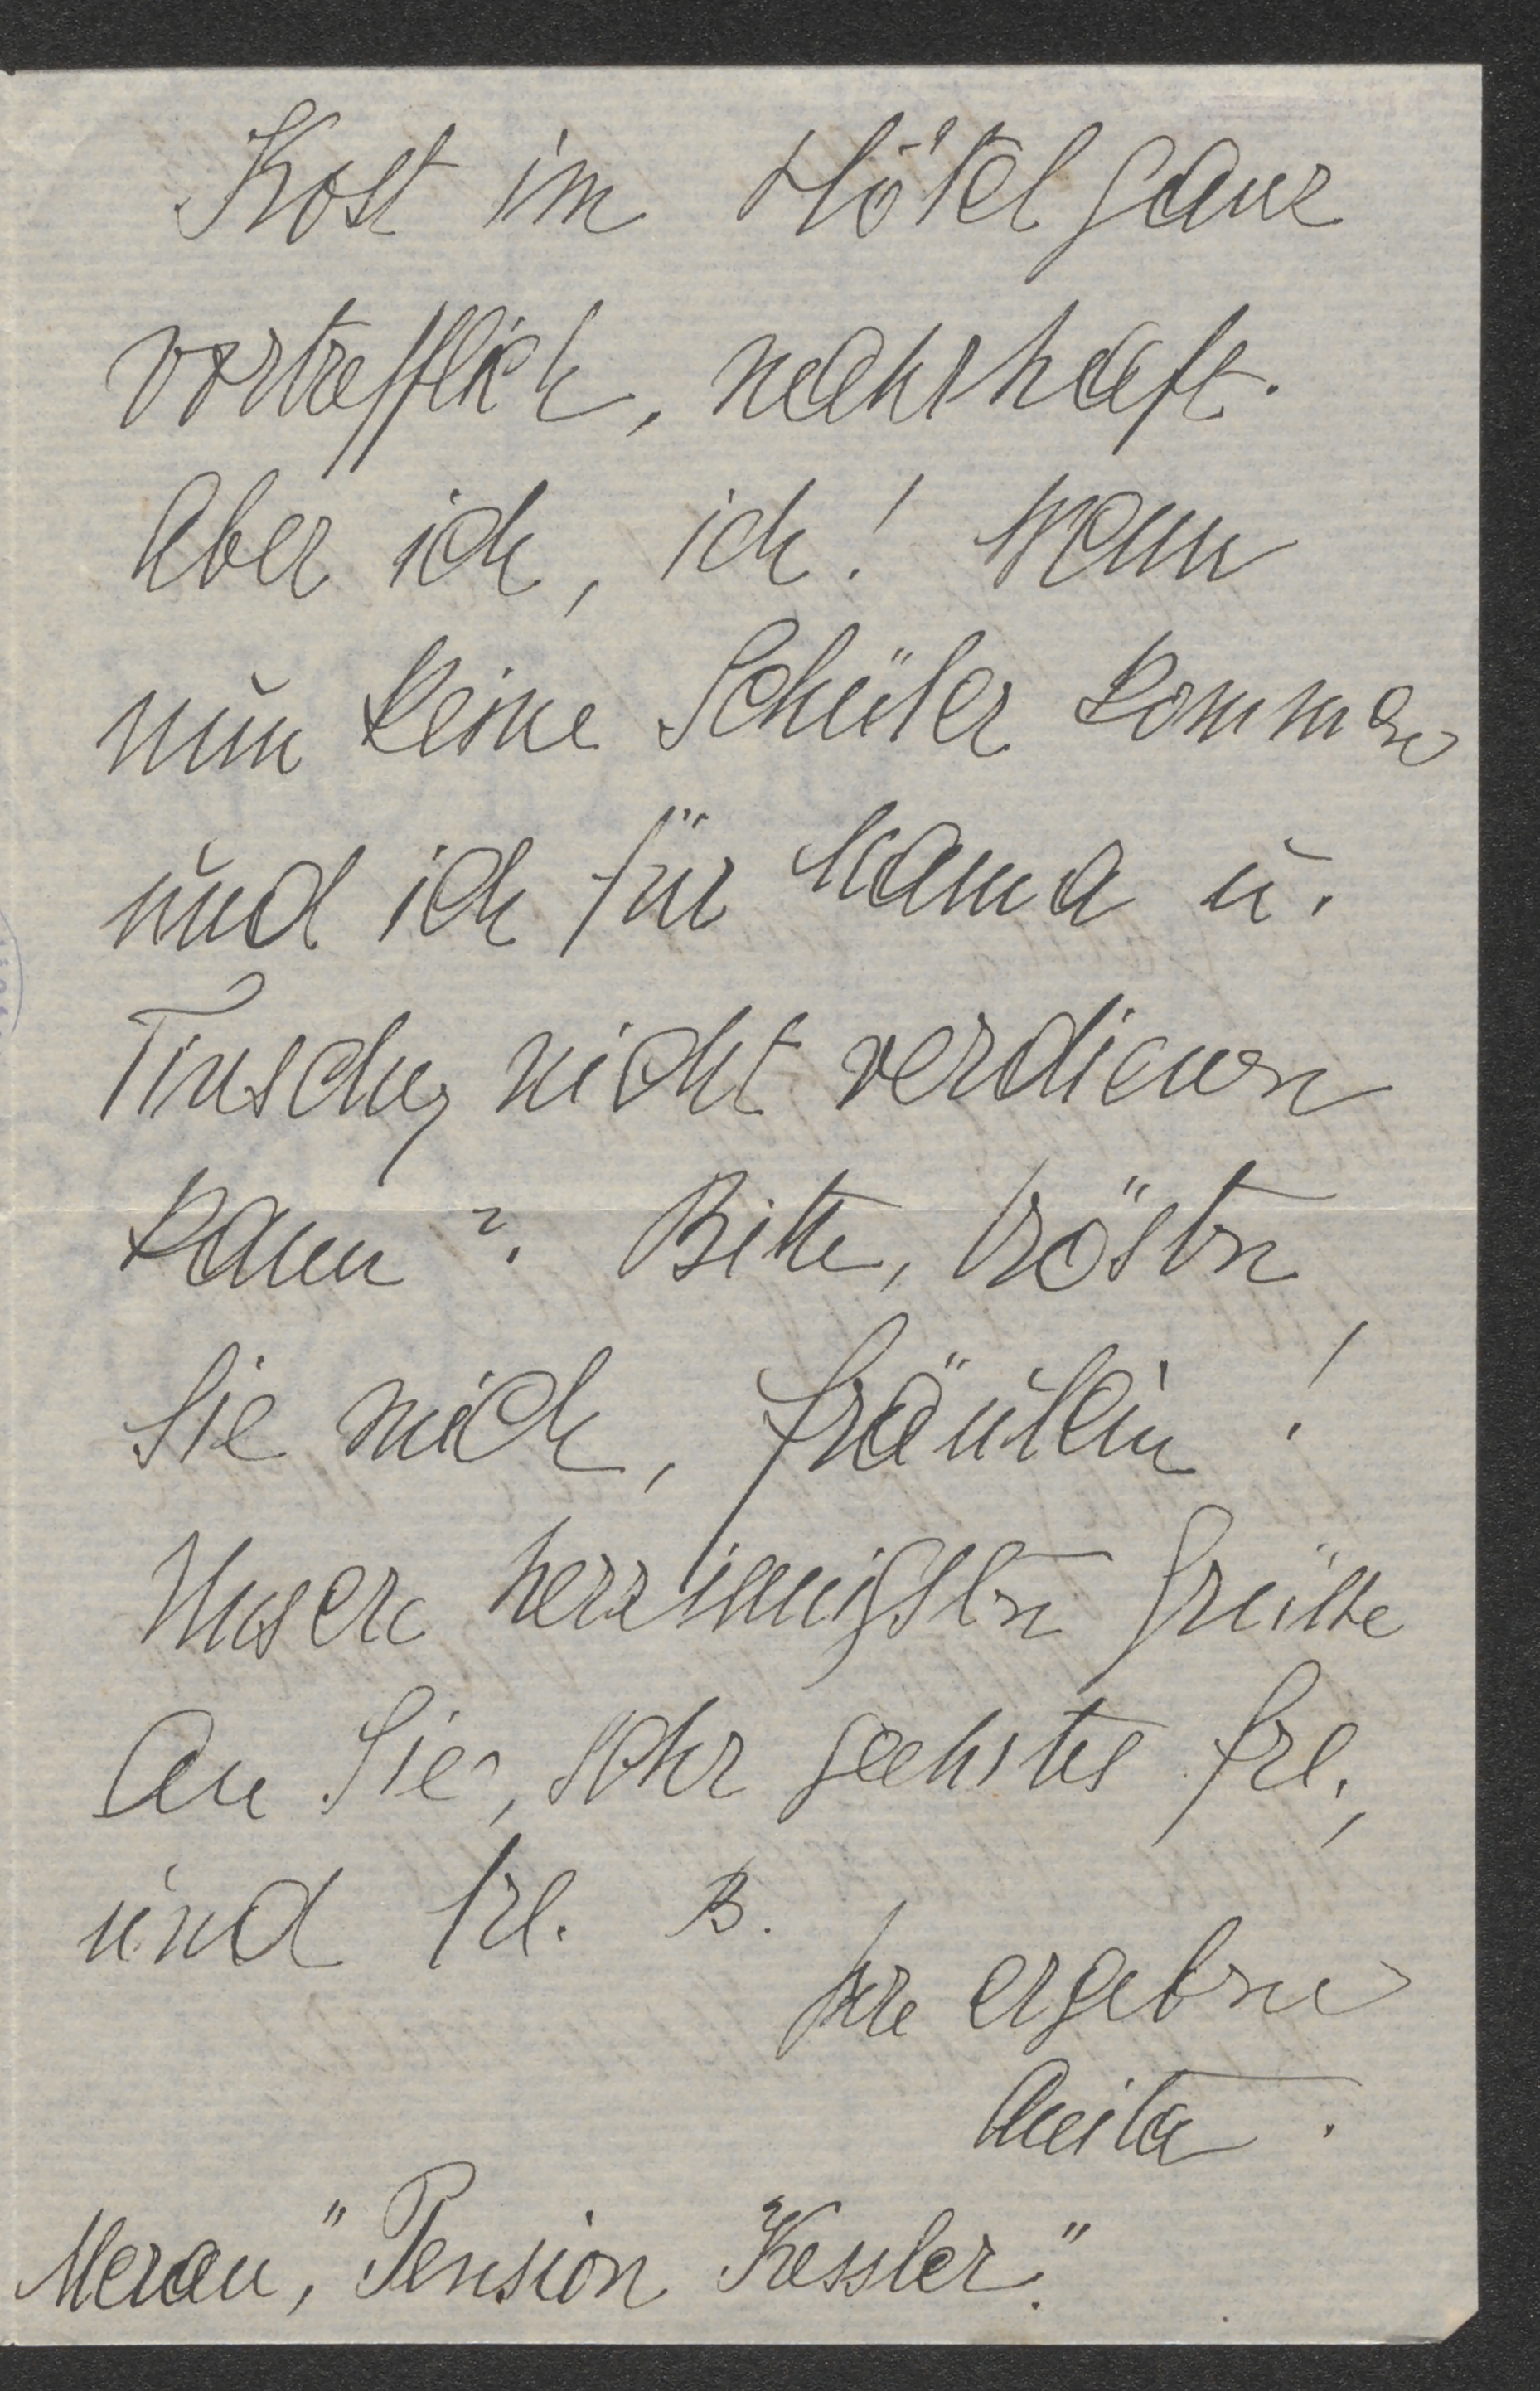 Kost im Hôtel ganz
vortrefflich, nahrhaft.
Aber ich, ich! Wenn
nun keine Schüler kommen
und ich für Mama u.
nicht verdienen
kann? Bitte, trösten
Sie mich, Fräulein!
Unsere herzinnigsten Grüße
an Sie, sehr geehrtes Frl.,
und Frl. B.
Ihre ergebene
Anita.
Meran, "Pension Kessler."